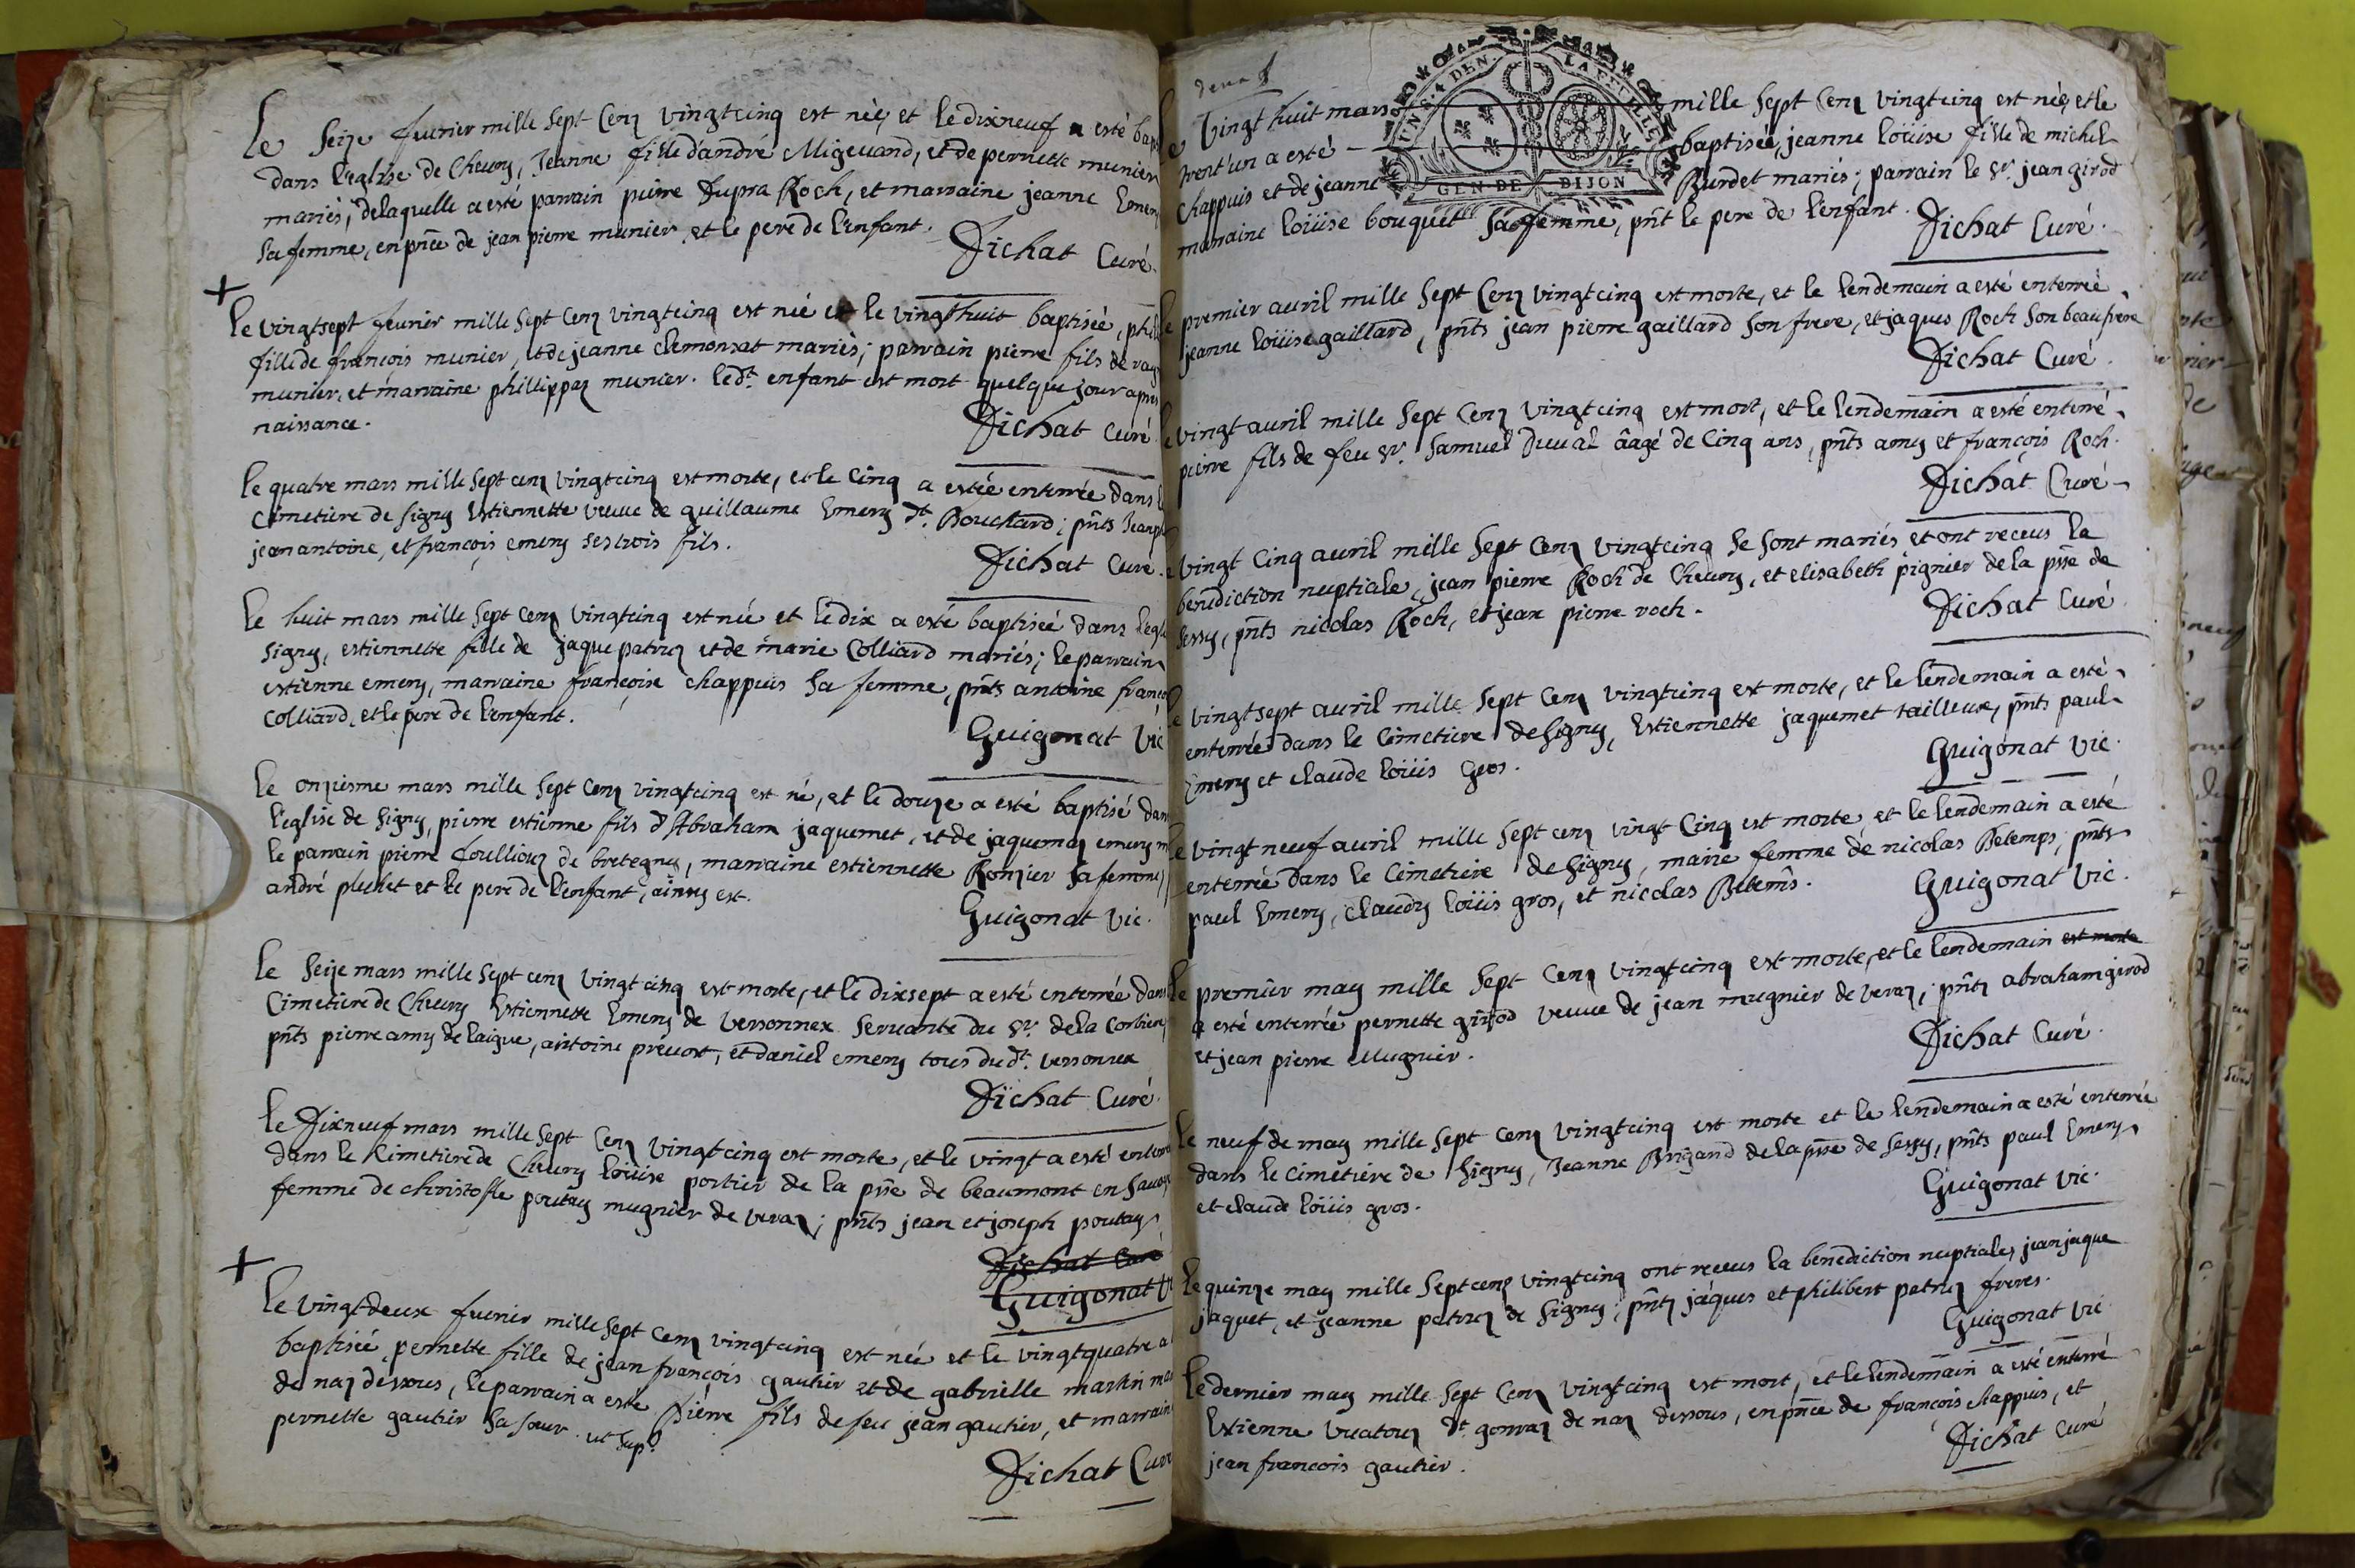 Le Seize feurier mille Sept Cenz vingtcinq est née, et le dixneuf a esté bap
dans l'eglise de Cheury, Jeanne fille d'andré Migeuand, et de pernette munier
mariés, delaquelle a esté parrain pierre Dupra Roch, et marraine jeanne Emery
Sa femme, en pñce de jean pierre munier et le pere de l'enfant.
Dichat Curé.
+
Le vingtsept feurier mille Sept Cenz vingtcinq est née et le vingthuit baptisée, phil
fille de francois munier, et de jeanne Clemonsat mariés; parrain pierre fils de
munier, et marraine phillippaz munier. ledt. enfant est mort quelque jour apres
naissance.
Dichat Curé
Le quatre mars mille Sept cenz vingtcinq est morte, et le Cinq a estée enterrée dans l
Cimetiere de Signy Estiennette veuue de guillaume Emery dt. Bouchard; pñts Jeanp
jean antoine, et françois emery ses trois fils.
Dichat Curé.
Le huit mars mille Sept Cenz vingtcinq est née et le dix a esté baptisée dans l'egl
Signy, estiennette fille de jaque patruz et de marie Colliard mariés; le parrain
estienne emery, marraine françoise chappuis Sa femme, pñts antoine franço
Colliard, et le pere de l'enfant.
Guigonat Vic
Le onziesme mars mille Sept Cenz vingtcinq est né, et le douze a esté baptisé dan
l'eglise de Signy, pierre estienne fils d'Abraham jaquemet, et de jaquemaz emery m
le parrain pierre Coullioux de bretegny, marraine estiennette Ronzier Sa femme,
andré pluchet et le pere de l'enfant, ainsy est.
Guigonat Vic.
Le Seize mars mille Sept cenz vingt cinq est morte, et le dixsept a esté enterrée dans
Cimetiere de Cheury Estiennette Emery de Versonnex Seruante du Sr. de la Corbiere,
pñts pierre amy de laigue, antoine preuost, et daniel emery tous du dt. Versonnex
Dichat Curé.
Le Dixneuf mars mille Sept Cenz vingtcinq est morte, et le vingt a esté enterré
dans le Cimetiere de Cheury loüise portier de la pñe de beaumont en Sauoy
femme de christofle poutay mugnier de veraz; pñts jean et joseph poutay
Dichat Curé
Guigonat V
+
Le vingtdeux feurier mille Sept Cenz vingtcinq est née et le vingtquatre a
baptisée, pernette fille de jean françois gautier et de gabrielle martin ma
de naz dessous, le parrain a esté pierre fils de feu jean gautier, et marraine
pernette gautier Sa soeur. ut sup.
Dichat Curé
Le Vingt huit mars mille Sept Cenz vingtcinq est née, et le
trent'un a esté baptisée, jeanne loüise fille de michel
Chappuis et de jeanne Burdet mariés; parrain le Sr. jean girod
marraine loüise bouquet Sa femme, pñt le pere de l'enfant.
Dichat Curé.
UN S. 4 DEN. LA FEUILLE
GEN. DE DIJON
Le premier auril mille Sept Cenz vingtcinq est morte, et le lendemain a esté enterrée
jeanne loüise gaillard, pñts jean pierre gaillard Son frere, et jaques Roch Son beaufrere
Dichat Curé.
Le vingt auril mille Sept Cenz vingtcinq est mort, et le lendemain a esté enterré
pierre fils de feu Sr. Samuel Duual âagé de Cinq ans, pñts amy et francois Roch.
Dichat Curé
Le vingt Cinq auril mille Sept Cenz vingtcinq Se Sont mariés et ont receus la
benediction nuptiale, jean pierre Roch de Cheury, et elisabeth pignier de la pñe de
Sessy, pñts nicolas Roch, et jean pierre roch.
Dichat Curé
Le vingtsept auril mille Sept Cenz vingtcinq est morte, et le lendemain a esté
enterrée dans le Cimetiere de Signy, Estiennette jaquemet tailleuse, pñts paul
Emery et Claude loüis Gros.
Guigonat Vic.
Le vingt neuf auril mille Sept cenz vingt Cinq est morte et le lendemain a esté
enterrée dans le Cimetiere de Signy, marie femme de nicolas Betemps, pñts
paul Emery, Claudy loüis gros, et nicolas Betems.
Guigonat Vic.
Le premier may mille Sept Cenz vingtcinq est morte, et le lendemain est morte
a esté enterrée pernette girod veuue de jean mugnier de veraz, pñts abraham girod
et jean pierre Mugnier.
Dichat Curé.
Le neuf de may mille Sept Cenz vingtcinq est morte et le lendemain a esté enterrée
dans le Cimetiere de Signy, Jeanne Brizand de la pñe de Sessy, pñts paul Emery
et Claude loüis gros.
Guigonat Vic.
Le quinze may mille Sept cenz vingtcinq ont receus la benediction nuptiale, jean jaque
jaquet, et jeanne patruz de Signy; pñts jaques et philibert patruz freres.
Guigonat Vic.
Le dernier may mille Sept Cenz vingtcinq est mort, et le lendemain a esté enterré
Estienne Vuatoux dt. gonraz de naz dessous, en pñce de françois Chappuis, et
jean francois gautier.
Dichat Curé